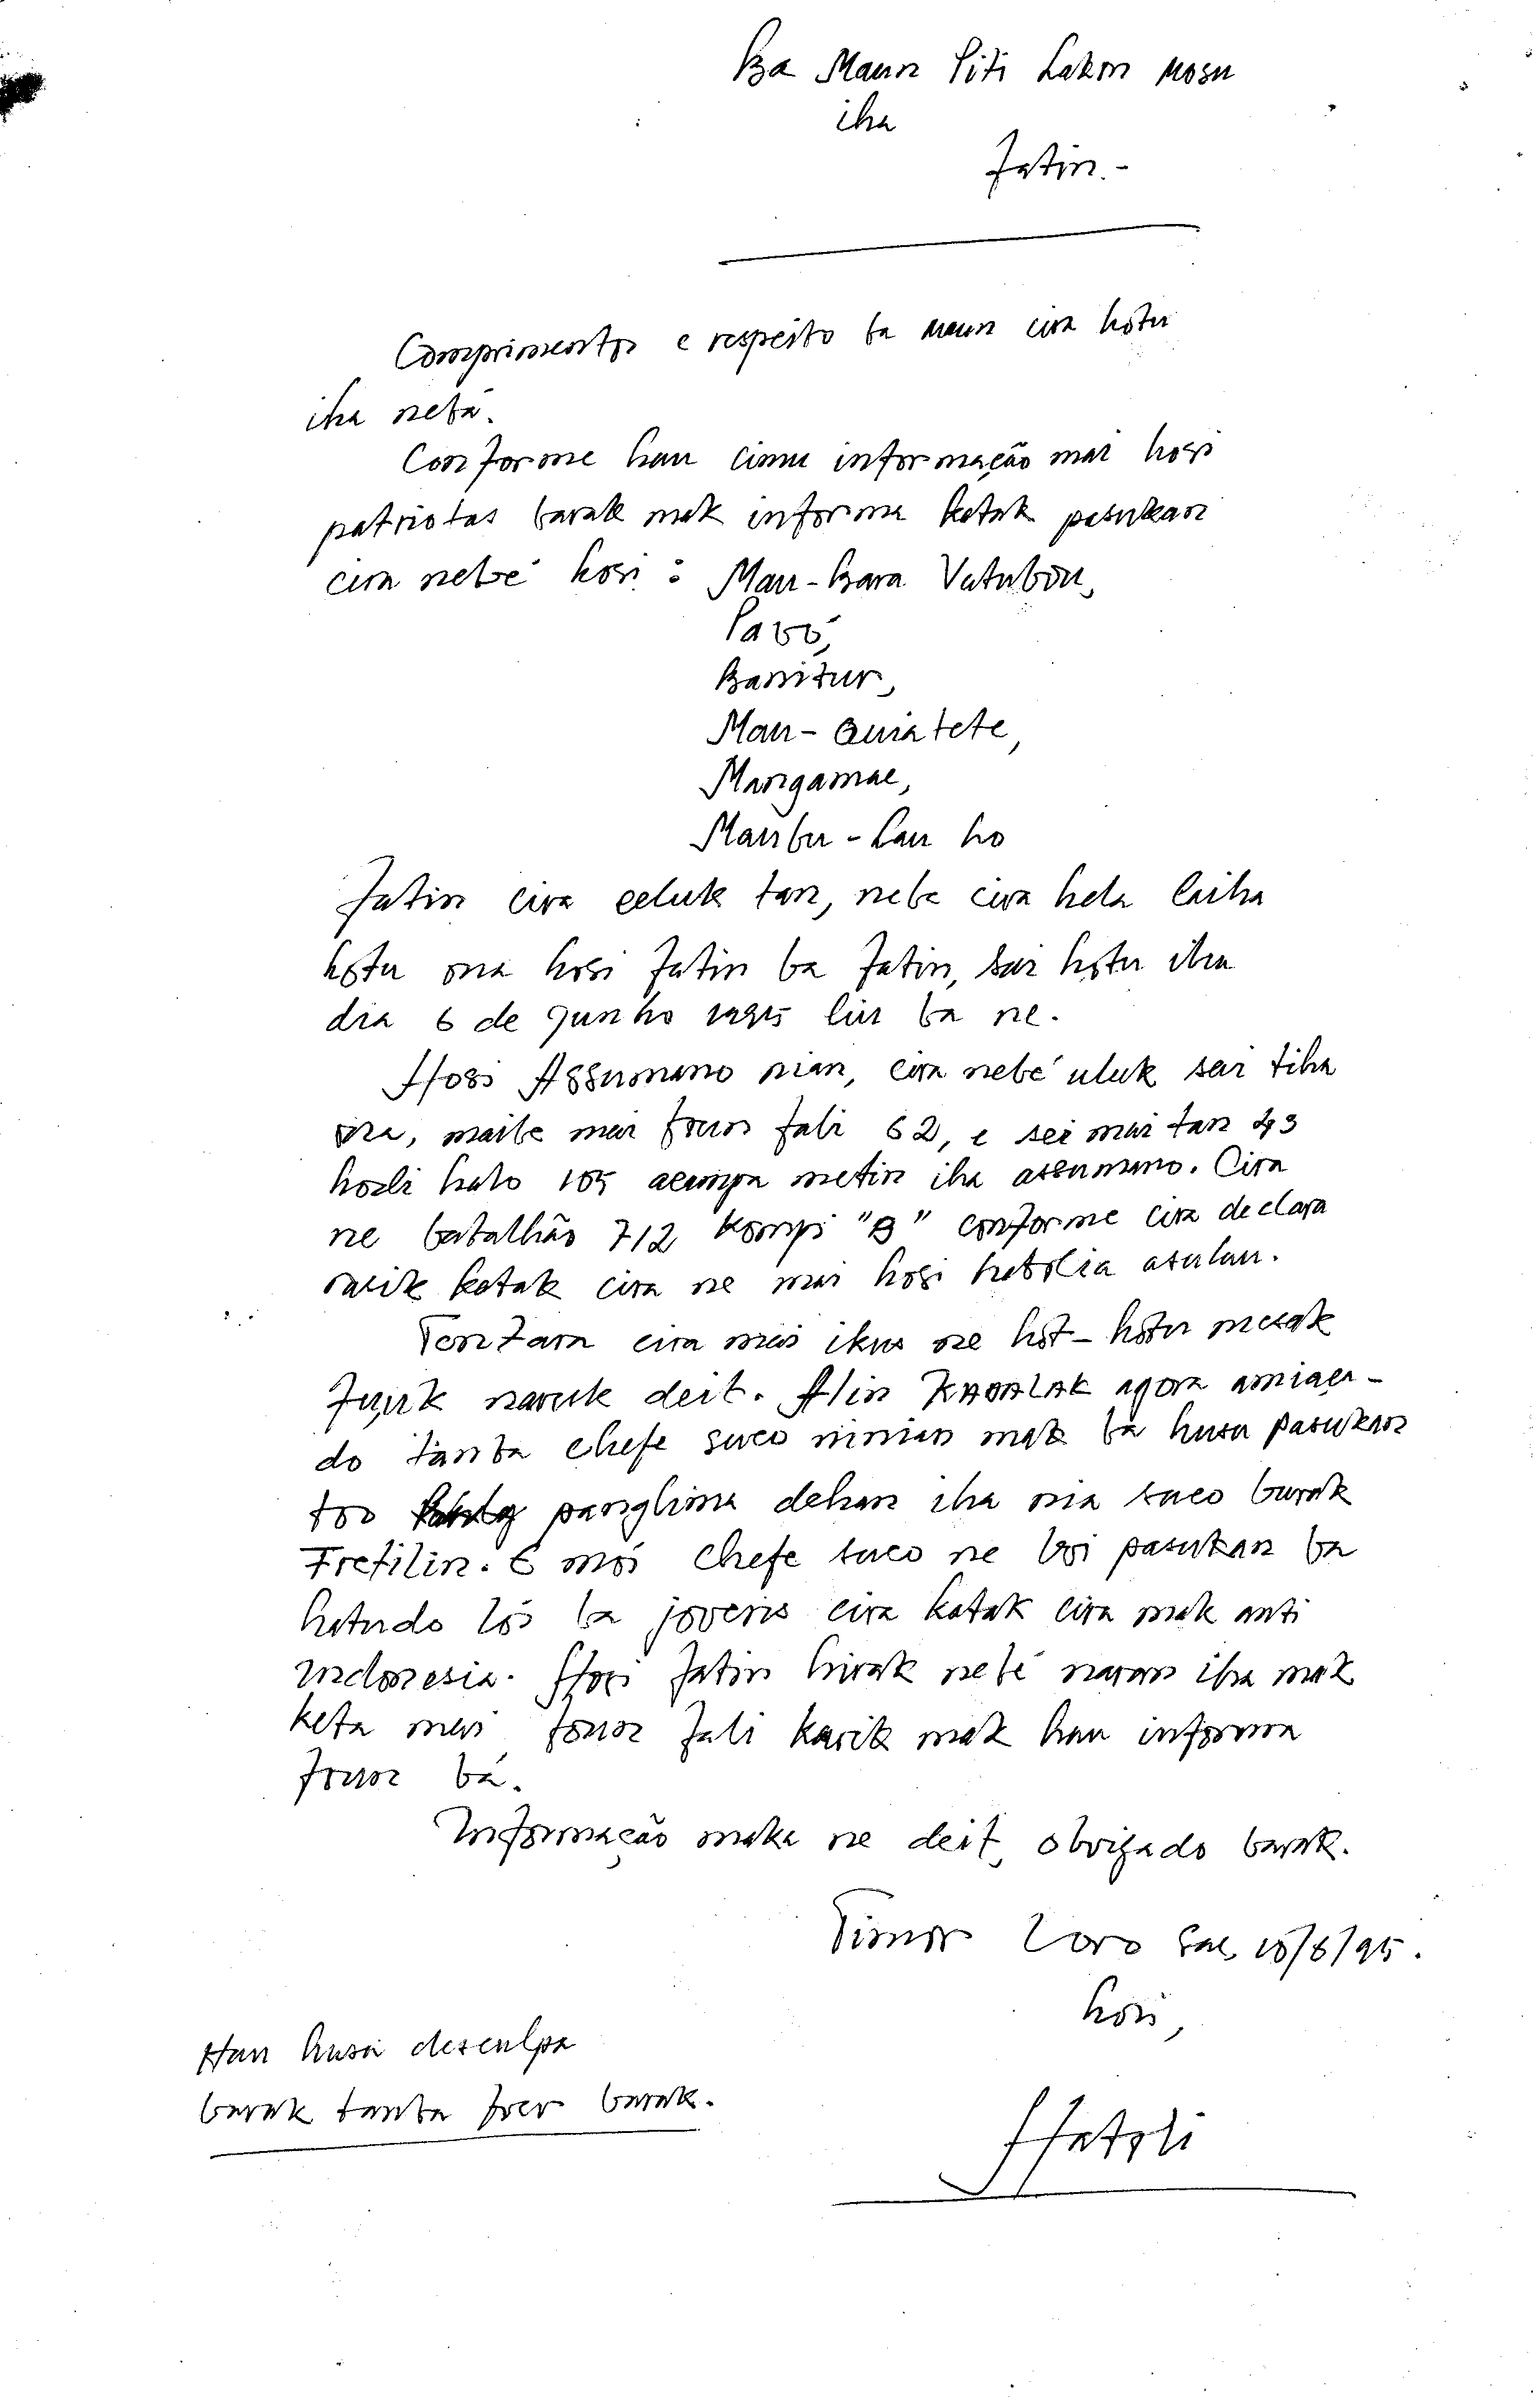 Ba Maun Piti Lakon Mosu
iha
Fatin.-
Comprimentos e respeito ba maun cira hotu
iha nebá.
Conforme hau cimu informação mai hosi
patriotas barak mak informa katak pasukan
cira nebé hosi: Mau-Bara Vatubou,
Pavó,
Banitur,
Mau-Quiatete,
Maugamae,
Maubu-Lau ho
fatin cira celuk tan, nebe cira hela laiha
hotu ona hosi fatin ba fatin, sai hotu iha
dia 6 de Junho 1995 liu ba ne.
Hosi Assumano nian, cira nebé uluk sai tiha
ona, maibe mai foun fali 62, e sei mai tan 43
hodi halo 105 acampa metin iha assumano. Cira
ne batalhão 712 kompi "B" conforme cira declara
rasik katak cira ne mai hosi hatolia atulau.
Tentara cira mai ikus ne hot-hotu mesak
fuuk naruk deit. Alin KADALAK agora amiaça-
do tanba chefe suco ninian mak bá husu pasukan
too panglima dehan iha nia suco barak
Fretilin. E mos chefe suco ne lori pasukan ba
hatudo los ba jovens cira katak cira mak anti
Indonesia. Hosi fatin hirak nebé naran iha mak
keta mai foun fali karik mak hau informa
foun bá.
Informação maka ne deit, obrigado barak.
Timor Loro Sae, 10/6/95.
hosi,
Hau husu desculpa
barak tanba foer barak.
Hatoli